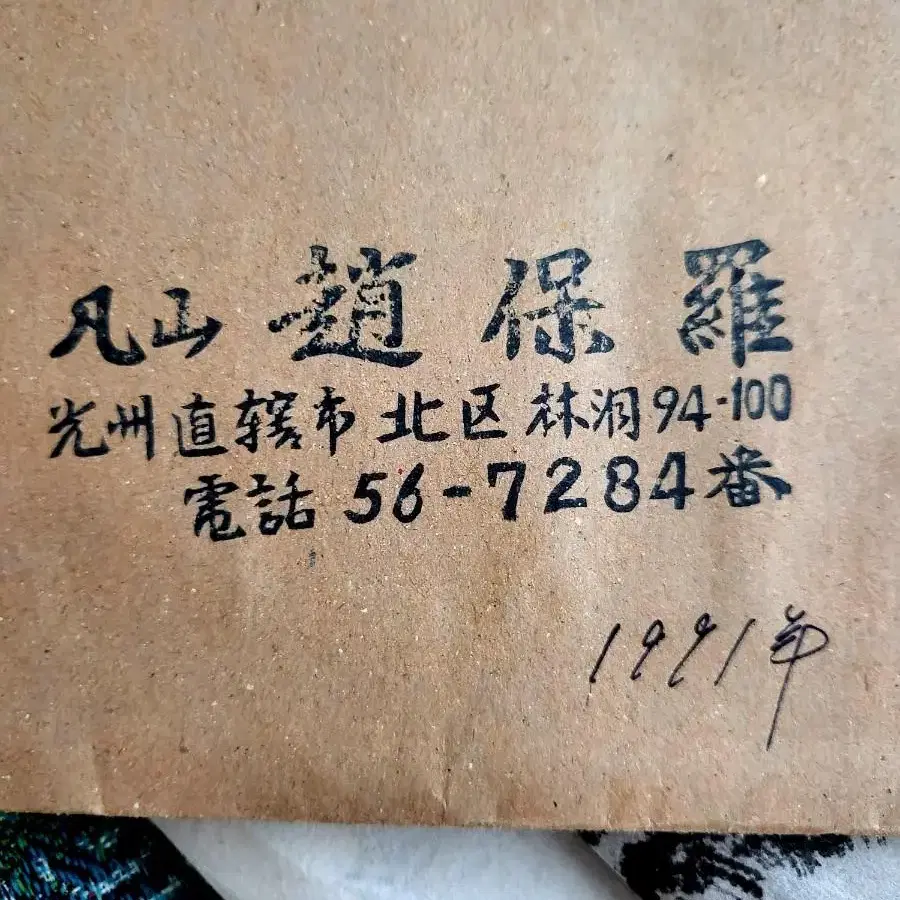 凡山 趙保羅
光州直轄市 北区 林洞 94-100
電話 56-7284番
1991年